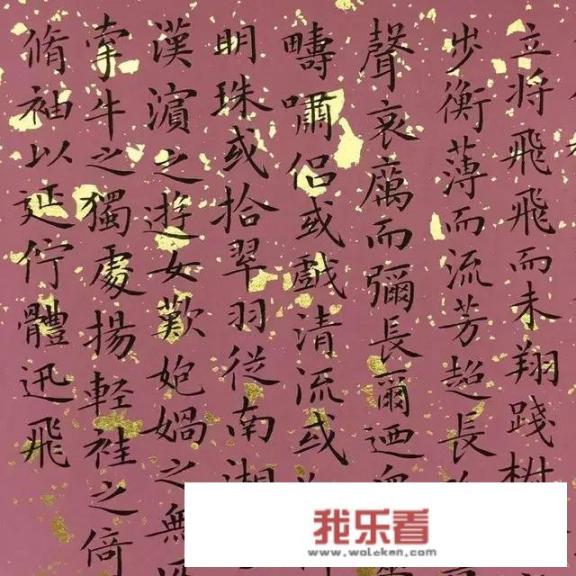 立将飛飛而未翔踐
步衡薄而流芳超長
聲哀厲而彌長爾迺
疇嘯侶或戲清流或
明珠或拾翠羽從南湘
漢濱之遊女歎媧之無
牽牛之獨處揚輕袿之倚
脩袖以延佇體迅飛
我乐看
www.woleken.com